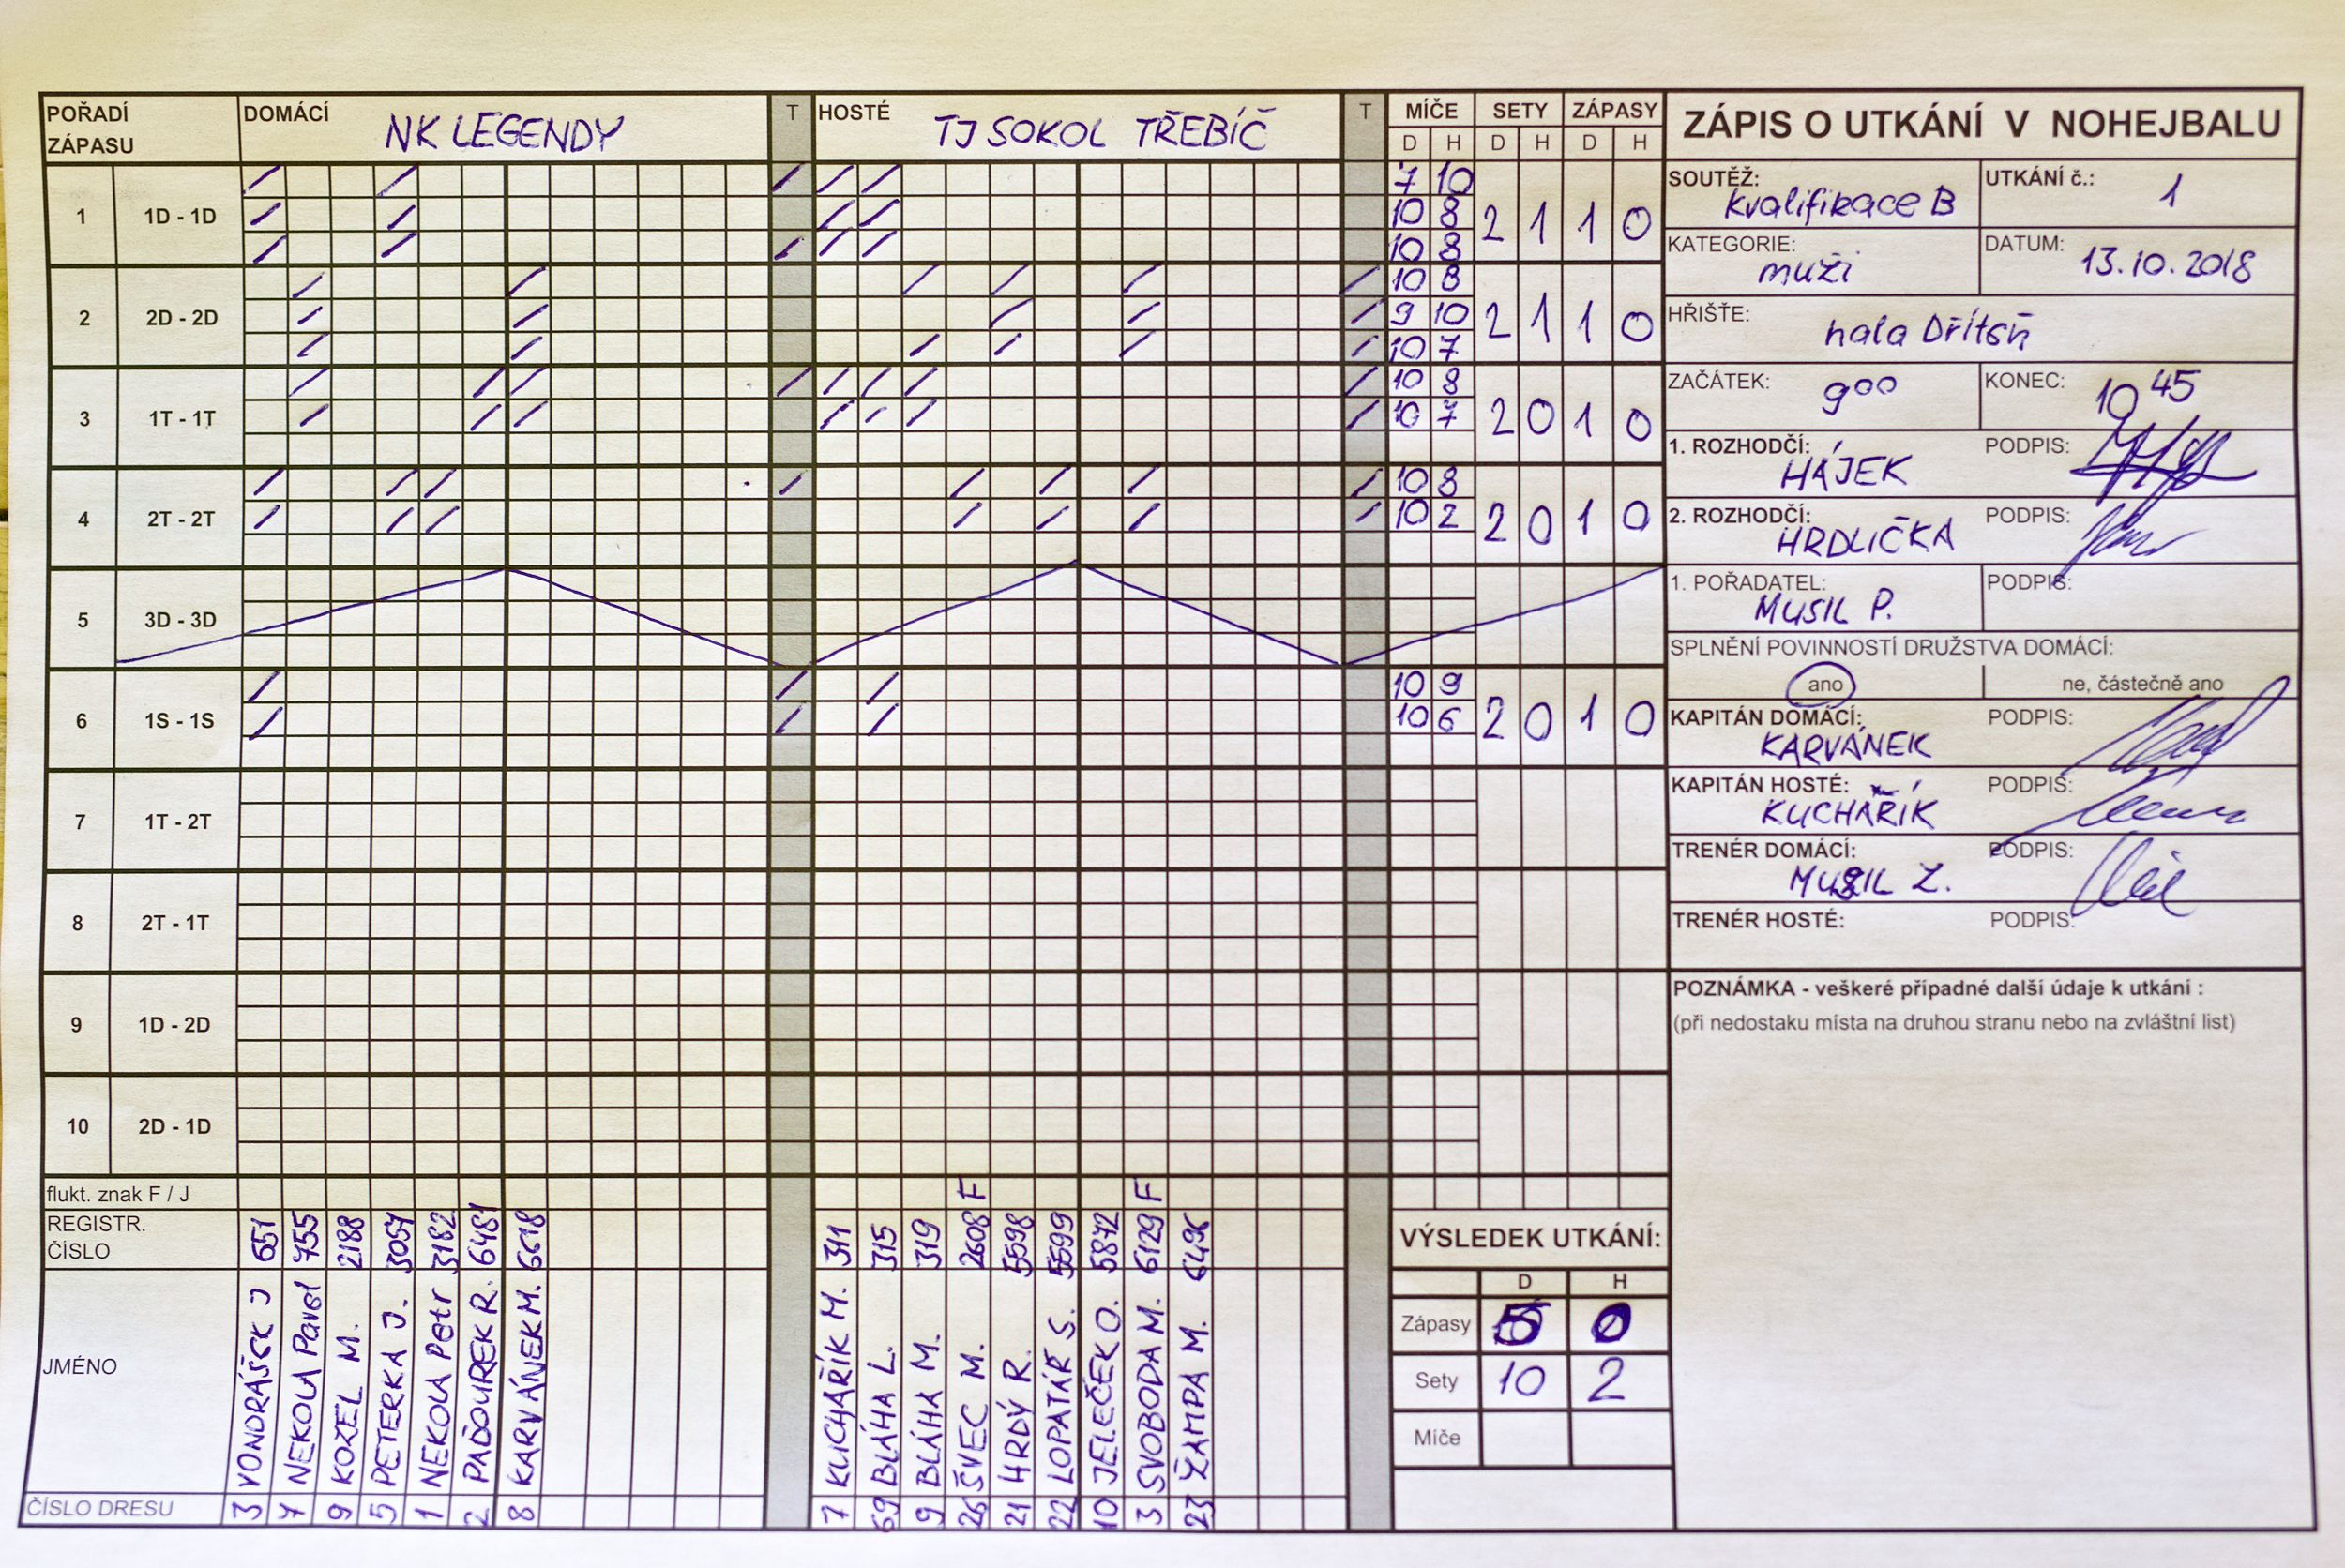 POŘADÍ ZÁPASU DOMÁCÍ NK LEGENDY T HOSTÉ TJ SOKOL TŘEBÍČ T MÍČE SETY ZÁPASY
D H D H D H
1 1D - 1D 7 10 2 1 1 0
10 8
10 8
2 2D - 2D 10 8 2 1 1 0
9 10
10 7
3 1T - 1T 10 8 2 0 1 0
10 7
4 2T - 2T 10 8 2 0 1 0
10 2
5 3D - 3D
6 1S - 1S 10 9 2 0 1 0
10 6
7 1T - 2T
8 2T - 1T
9 1D - 2D
10 2D - 1D
flukt. znak F / J F F
REGISTR. ČÍSLO 651 755 2188 3057 3182 6481 6618 311 315 319 2608 5598 5599 5872 6129 6496
JMÉNO VONDRÁŠEK J NEKOLA Pavel KOZEL M. PETERKA J. NEKOLA Petr PAĎOUREK R. KARVÁNEK M. KUCHAŘÍK M. BLÁHA L. BLÁHA M. ŠVEC M. HRDÝ R. LOPATÁŘ S. JELEČEK O. SVOBODA M. ŽAMPA M.
ČÍSLO DRESU 3 7 9 5 1 2 8 7 69 9 26 21 22 10 3 23
VÝSLEDEK UTKÁNÍ:
D H
Zápasy 5 0
Sety 10 2
Míče
ZÁPIS O UTKÁNÍ V NOHEJBALU
SOUTĚŽ: kvalifikace B UTKÁNÍ č.: 1
KATEGORIE: muži DATUM: 13.10.2018
HŘIŠTĚ: hala Dříteň
ZAČÁTEK: 9 00 KONEC: 10 45
1. ROZHODČÍ: HÁJEK PODPIS:
2. ROZHODČÍ: HRDLIČKA PODPIS:
1. POŘADATEL: MUSIL P. PODPIS:
SPLNĚNÍ POVINNOSTÍ DRUŽSTVA DOMÁCÍ:
ano ne, částečně ano
KAPITÁN DOMÁCÍ: KARVÁNEK PODPIS:
KAPITÁN HOSTÉ: KUCHAŘÍK PODPIS:
TRENÉR DOMÁCÍ: MUSIL Z. PODPIS:
TRENÉR HOSTÉ: PODPIS:
POZNÁMKA - veškeré případné další údaje k utkání :
(při nedostaku místa na druhou stranu nebo na zvláštní list)